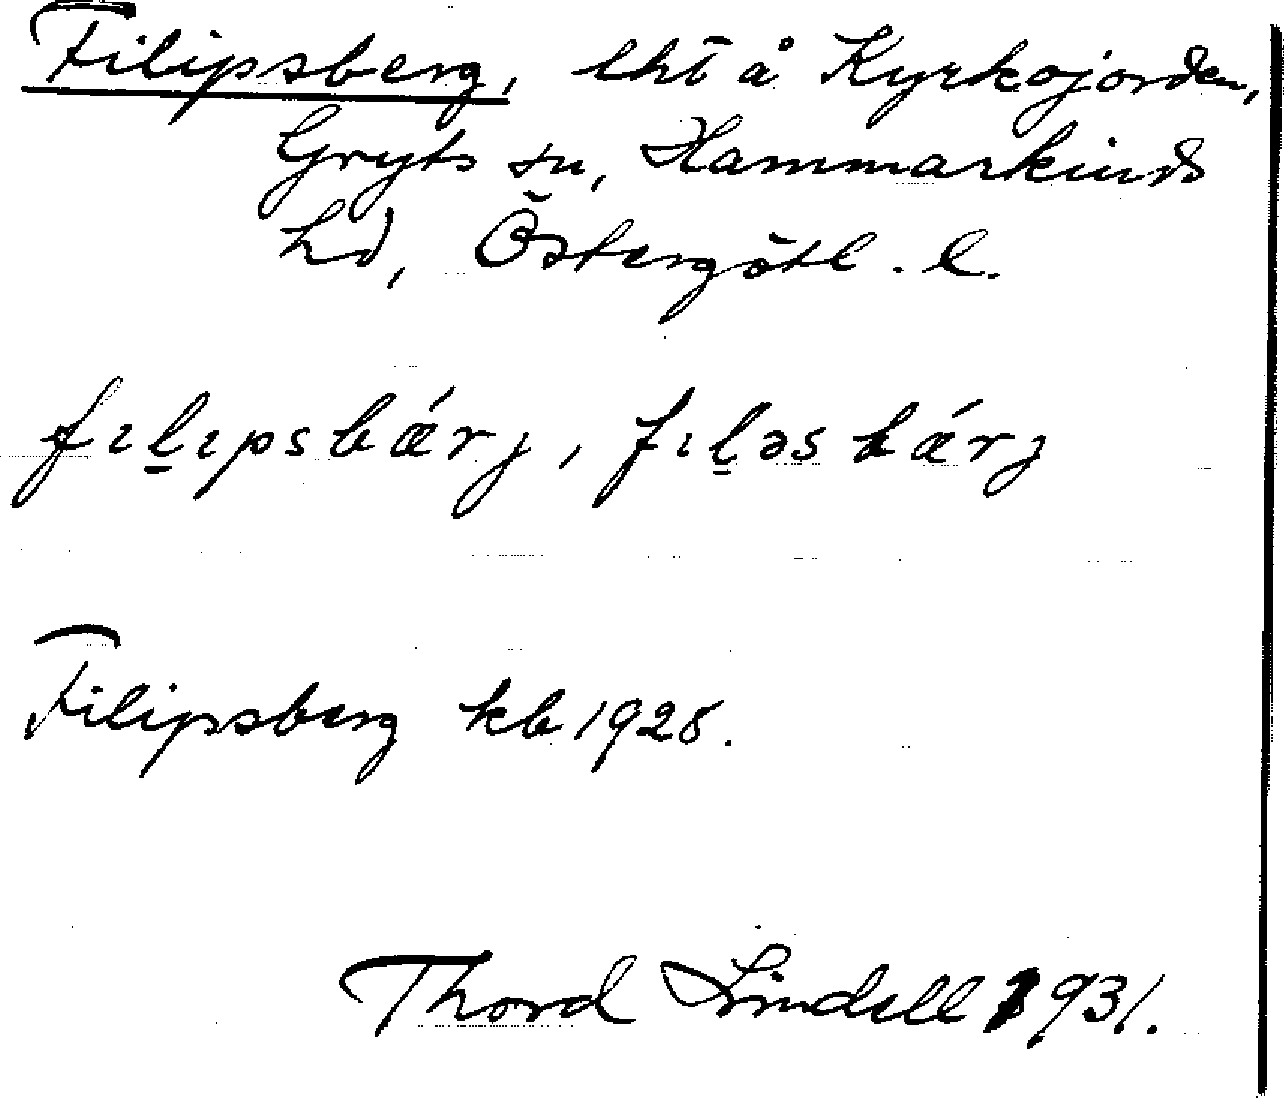 Filipsberg, lht å Kyrkojorden,
Gryts sn, Hammarkinds
hd, Östergötl. l.
fılıpsbǽrj, fıləsbǽrj
Filipsberg kb 1928.
Thord Lindell 1931.